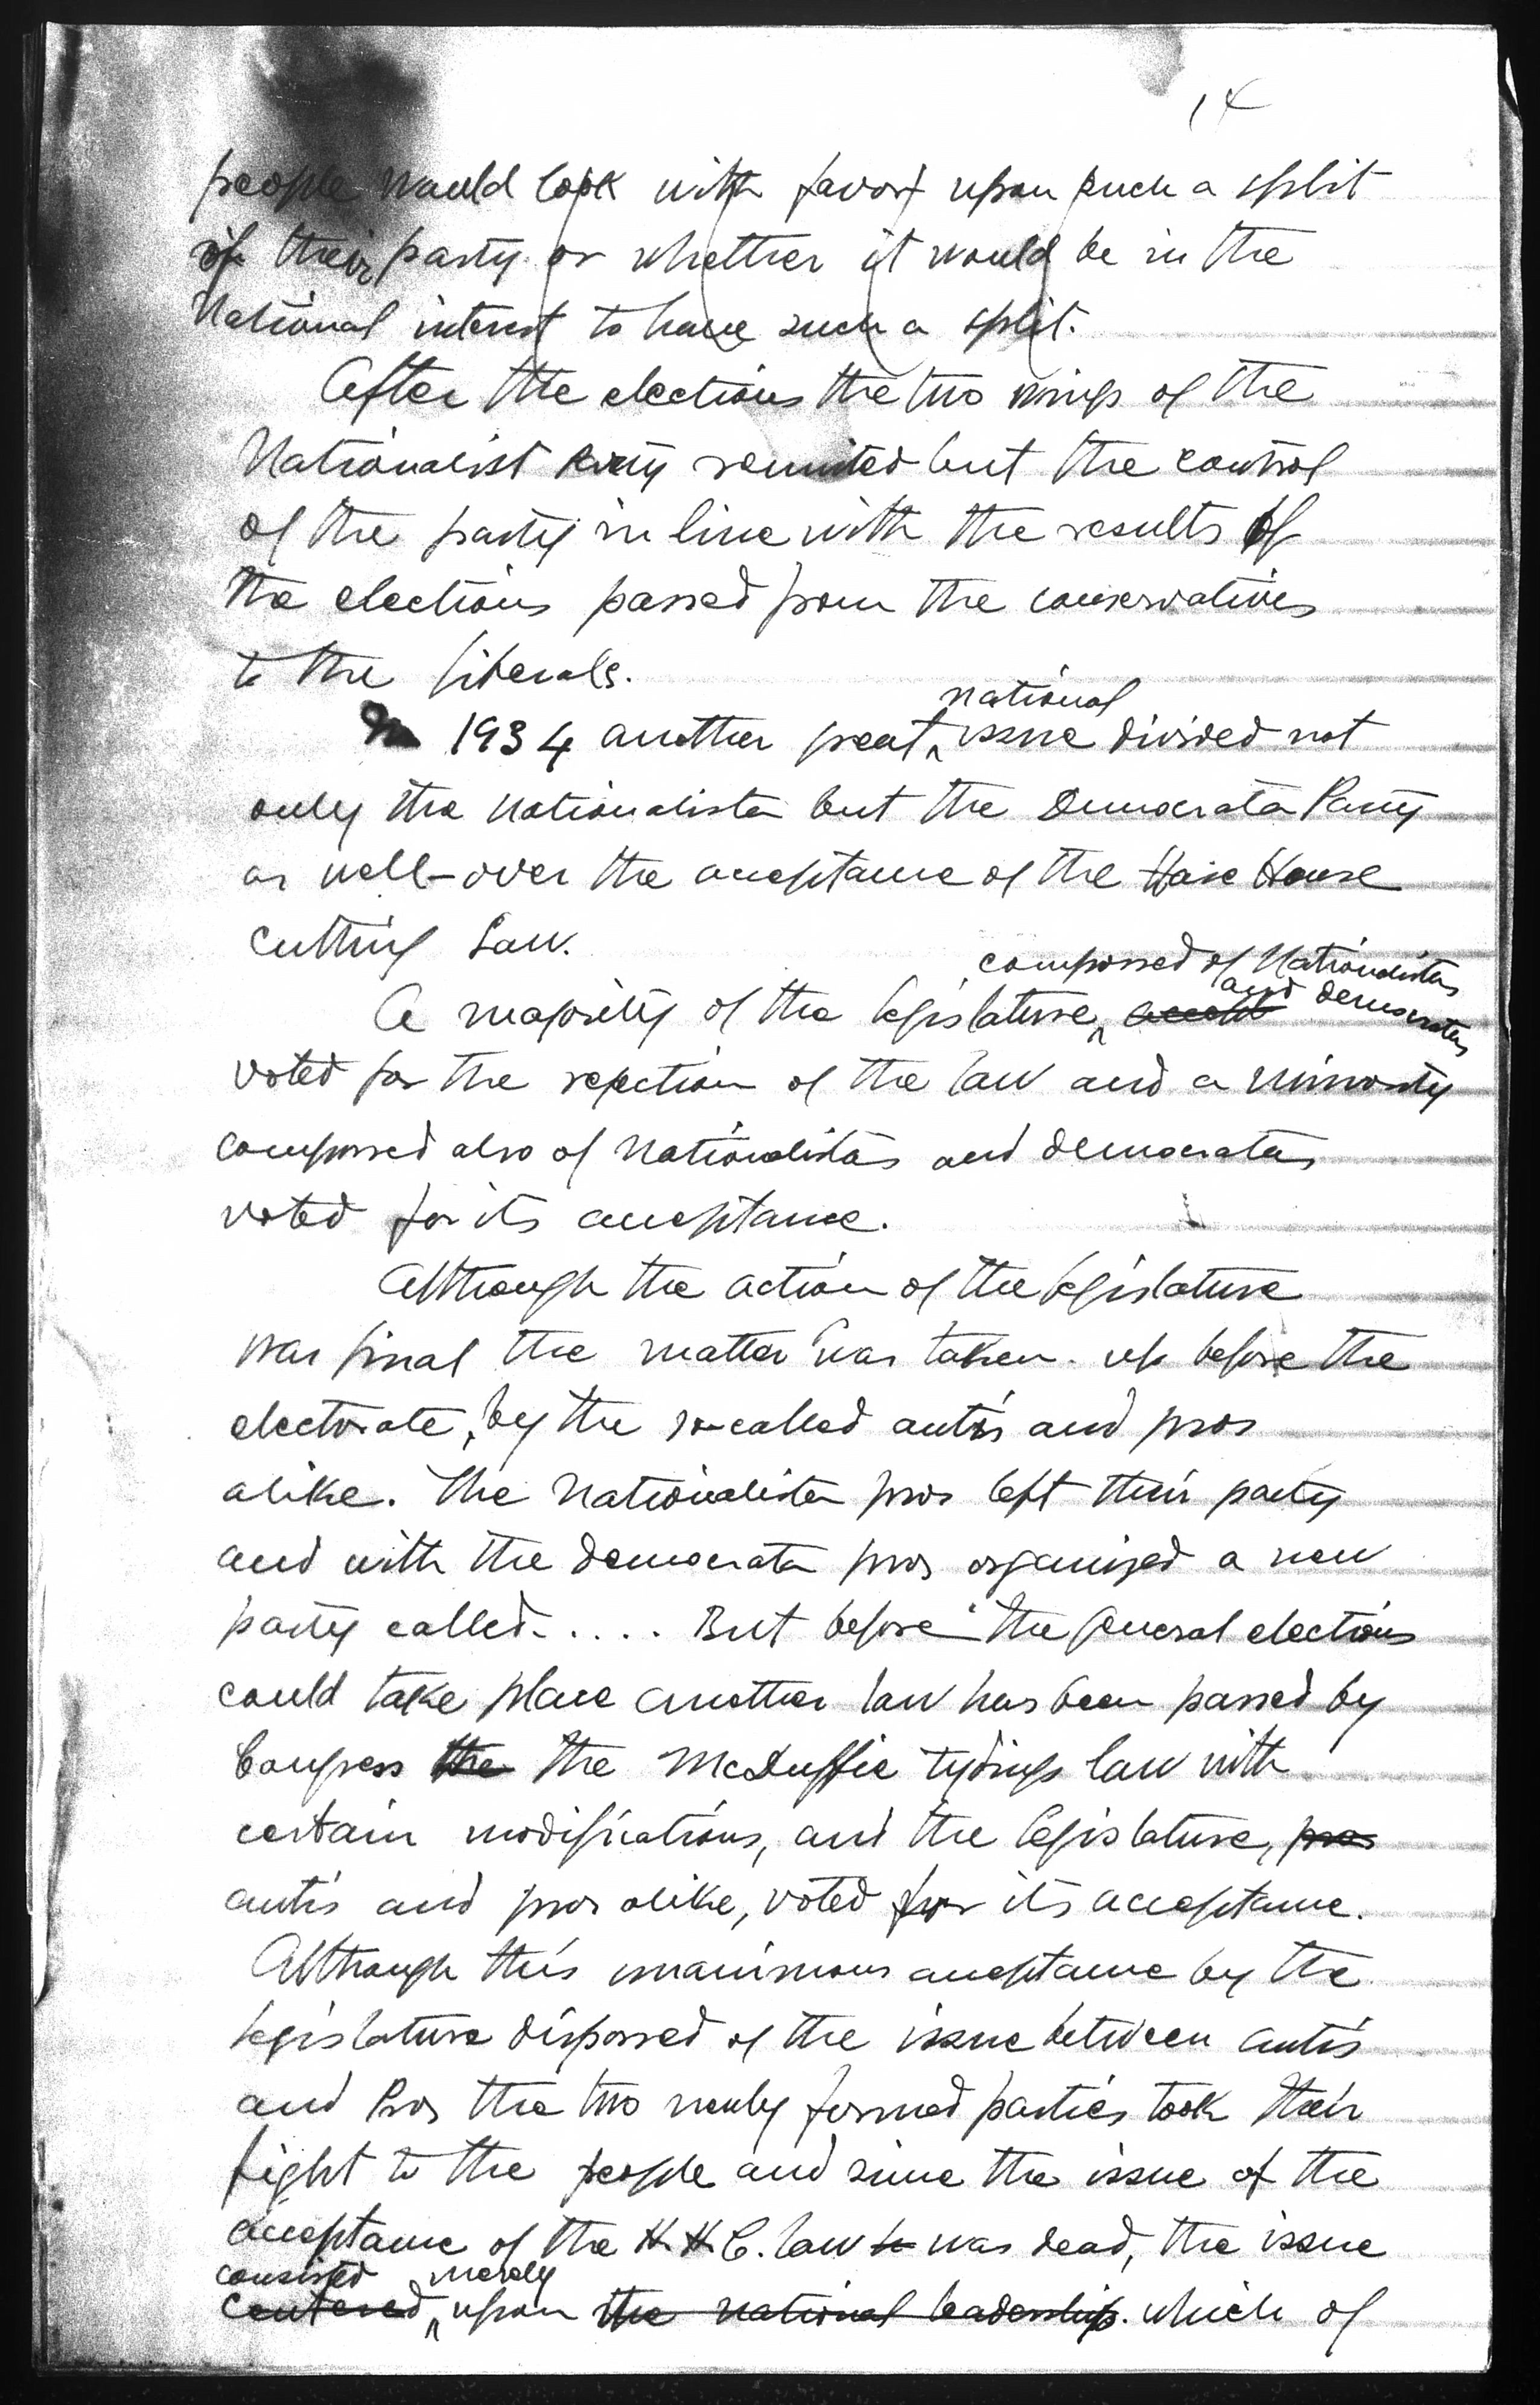 14
people would look with favor upon such a split
of their party or whether it would be in the
National interest to have such a split.
After the elections the two wings of the
Nationalist Party reunited but the control
of the party in line with the results of
the elections passed from the conservatives
to the liberals.
national
In 1934 another great issue divided not
only the nationalista but the Democrata Party
as well - over the acceptance of the Haire House
Cutting Law.
composed of Nationalistas
and democratas
A majority of the legislature,
voted for the rejection of the law and a minority
composed also of nationalistas and democratas
voted for its acceptance.
Although the action of the legislature
was final the matter was taken up before the
electorate, by the so-called antis and pros
alike. The Nationalista pros left their party
and with the democrata pros organized a new
party called..... But before the general elections
could take place another law has been passed by
Congress the the McDuffie Tydings law with
certain modifications, and the legislature, pros
antis and pros alike, voted for its acceptance.
Although this unanimous acceptance by the
legislature disposed of the issue between antis
and Pros the two newly formed parties took their
fight to the people and since the issue of the
acceptance of the H.H.C. law was dead, the issue
consisted merely
centered upon the national leadership. which of